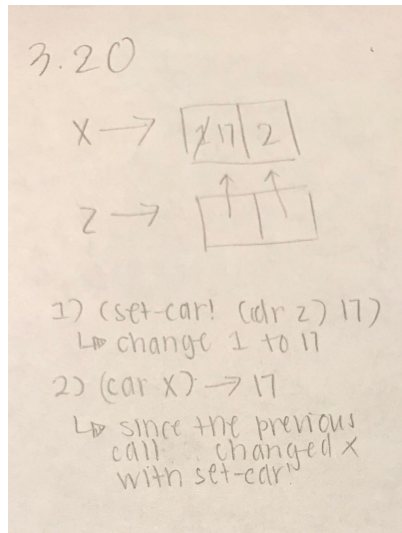 3.20
X → 1 17 2
Z →
1) (set-car! (cdr z) 17)
↳ change 1 to 17
2) (car x) → 17
↳ since the previous
call changed x
with set-car!